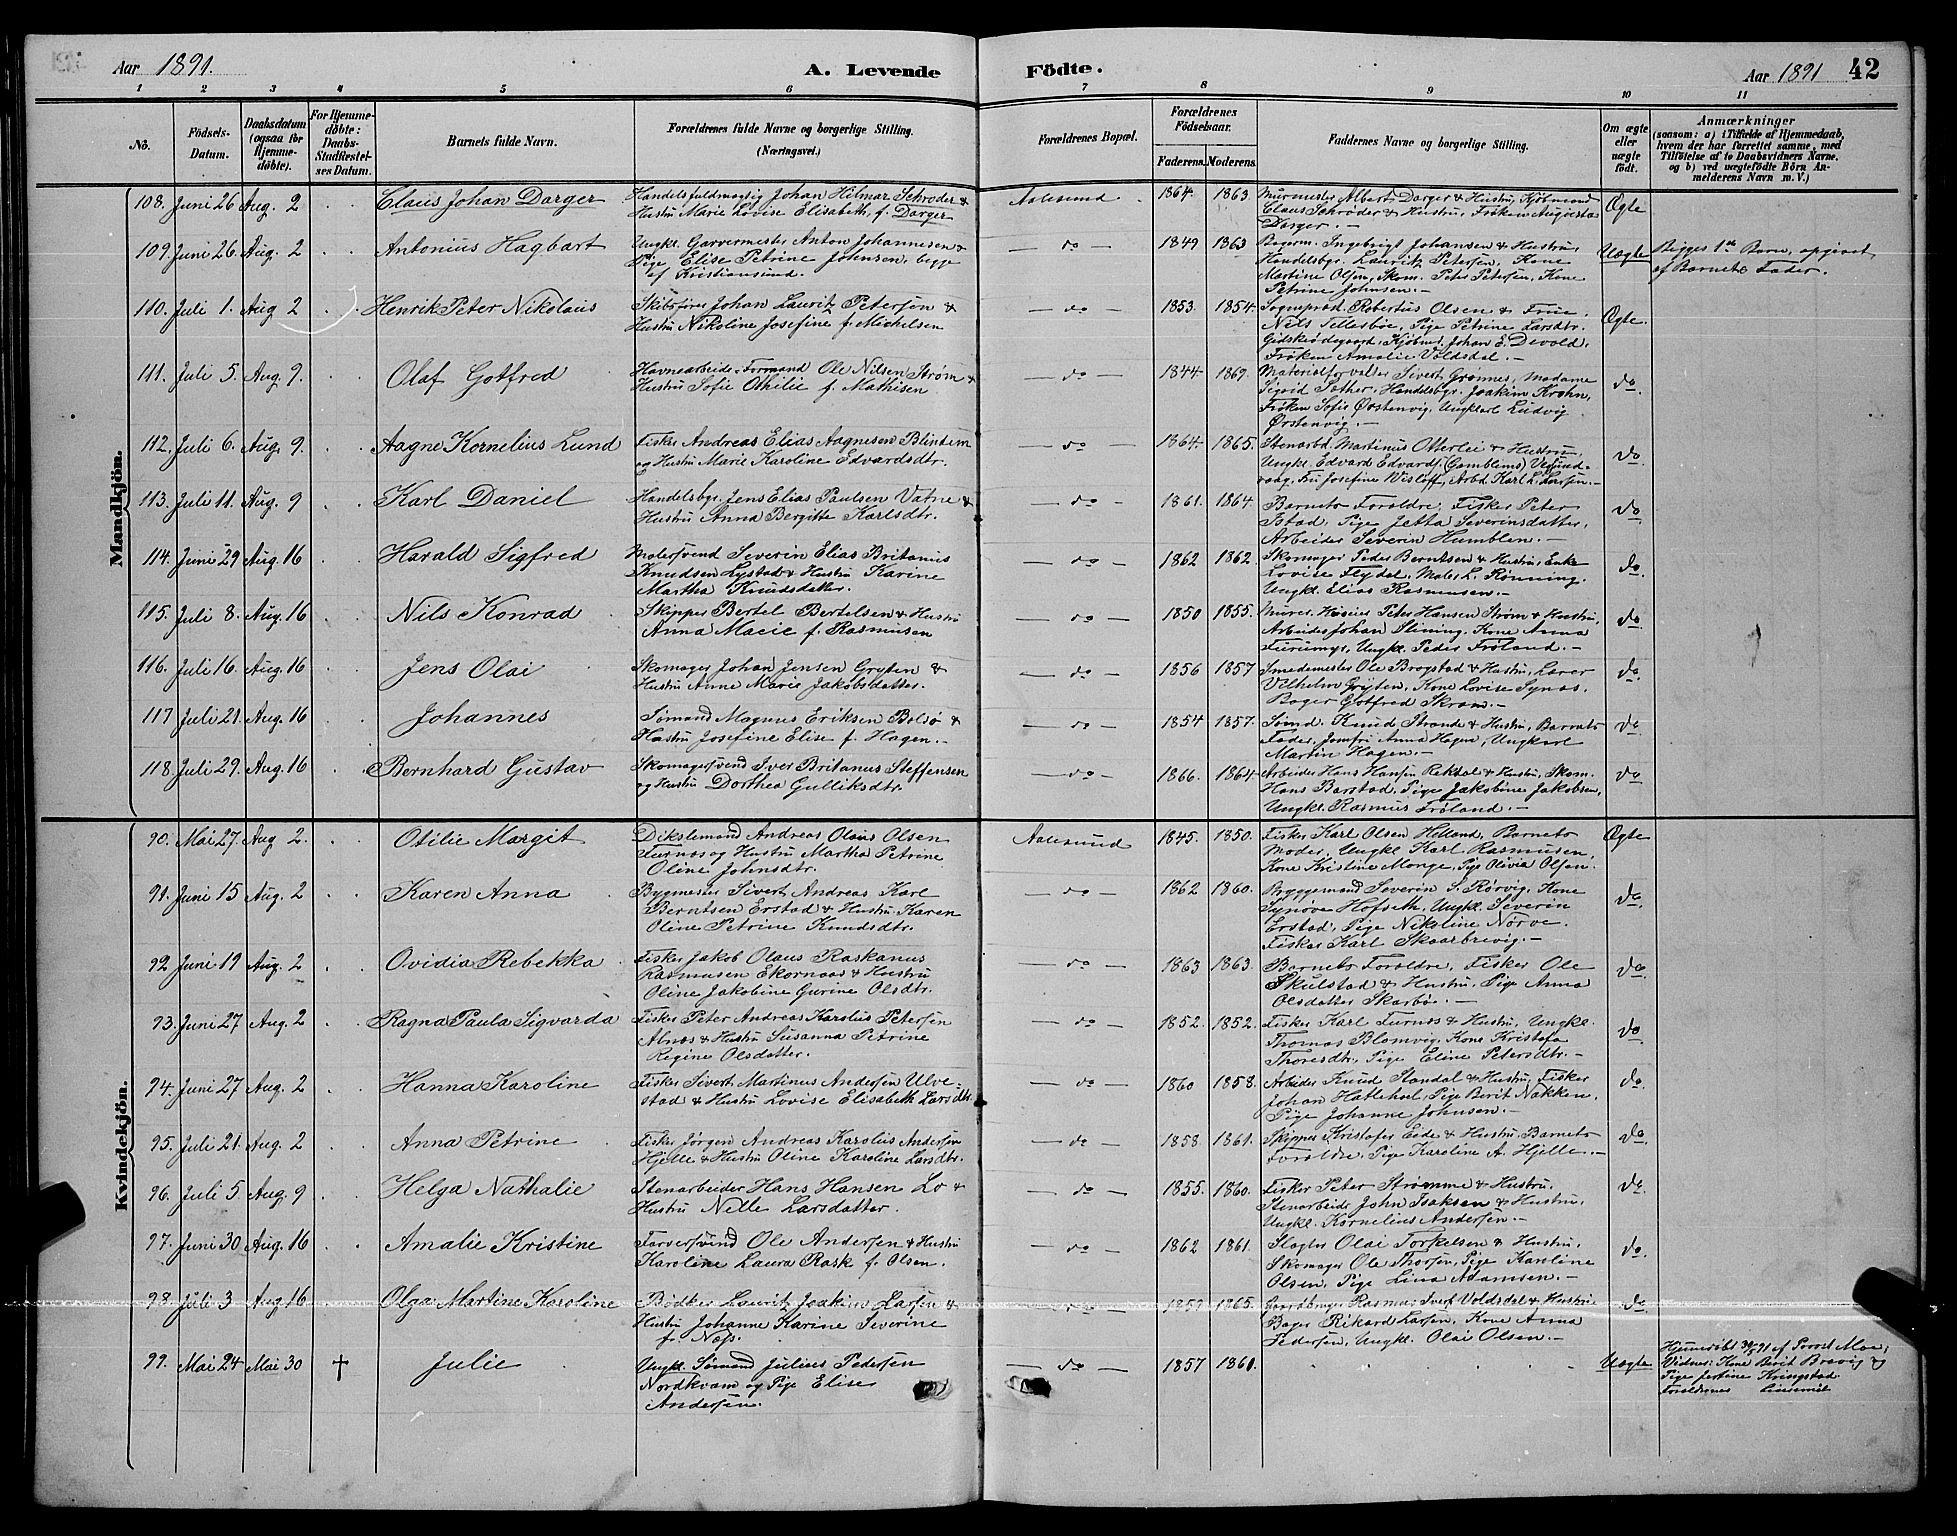 Aar 1891.
A. Levende Födte.
Aar 1891 42
1 2 3 4 5 6 7 8 9 10 11
No.
Födsels-Datum.
Daabsdatum (ogsaa for Hjemme-döbte).
For Hjemme-döbte: Daabs-Stadfæstel-ses Datum.
Barnets fulde Navn.
Forældrenes fulde Navne og borgerlige Stilling.
(Næringsvei.)
Forældrenes Bopæl.
Forældrenes Födselsaar.
Faderens. Moderens.
Faddernes Navne og borgerlige Stilling.
Om ægte eller uægte födt.
Anmærkninger
(saasom: a) i Tilfælde af Hjemmedaab,
hvem der har forrettet samme, med
Tilföielse af to Daabsvidners Navne,
og b) ved uægtefödte Börn An-
melderens Navn m. V.)
Mandkjön.
108. Juni 26 Aug. 2 Claus Johan Dorger Handelsfuldmægtig Johan Hilmar Schrøder & Aalesund 1864. 1863. Murmester Albert Dorger & Hustru, Kjøbmand Ægte
Hustru Marie Lovise Elisabeth f. Dorger Claus Schrøder & Hustru, Frøken Augusta
Dorger. —
109. Juni 26. Aug. 2 Antonius Hagbart Ungkl. Garvermester Anton Johannesen & — do — 1849 1863 Bogerm. Ingebrigt Johansen & Hustru, Uægte Begges 1ste Barn, opgivet
Pige Elise Petrine Johnsen, begge Handelsbgr. Lauritz Petersen, Kone af Barnets Fader.
af Kristiansund. Martine Olsen, Skom. Peter Petersen, Kone
Petrine Johnsen. —
110. Juli 1. Aug 2 Henrik Peter Nikolaus Skibsfører Johan Lauritz Petersen & — do — 1853 1854. Sogneprest Robertus Olsen & Frue, Ægte.
Hustru Nikoline Josefine f. Mickelsen Nils Tellesbøe, Pige Petrine Larsdtr.
Gidskeødegaard, Kjøbmd. Johan E. Devold,
Frøken Amalie Voldsdal. —
111. Juli 5. Aug. 9. Olaf Gotfred Havnearbeids-Formand Ole Nilsen Strøm & — do — 1844 1869. Materialforvalter Sivert Grønnes, Madame do
Hustru Sofie Othilie f. Mathisen Sigrid Sæther, Handelsbgr. Joakim Krohn,
Frøken Sofie Ørstenvig, Ungkarl Ludvig
Ørstenvig. —
112. Juli 6. Aug. 9. Aagne Kornelius Lund Fisker Andreas Elias Aagnesen Blindem — do — 1864. 1865. Stenarbd. Martinus Otterlei & Hustru, do
og Hustru Marie Karoline Edvardsdtr. Ungkl. Edvard Edvards. (Gamblems) Vegund-
vaag, Fru Josefine Wisløff, Arbd. Karl L. Larsen. —
113. Juli 11. Aug. 9 Karl Daniel Handelsbgr. Jens Elias Paulsen Vatne & — do — 1861. 1864. Barnets Forældre, Fisker Peter do
Hustru Anna Bergitte Karlsdtr. Istad, Pige Jetta Severinsdatter,
Arbeider Severin Humblen. —
114. Juni 29 Aug. 16 Harald Sigfred Malersvend Severin Elias Britanus — do — 1862 1862. Skomager Peder Berntsen & Hustru, Enke do.
Knudsen Lystad & Hustru Karine Lovise Flydal, Maler L. Rønning,
Martha Knudsdatter. Ungkl. Elias Rasmussen. —
115. Juli 8. Aug. 16 Nils Konrad Skipper Bertel Bertelsen & Hustru — do — 1850 1855. Murer Peter Hansen Strøm & Hustru, do
Anna Marie f. Rasmussen Arbeider Johan Slining, Kone Anna
Furumyr, Ungkl. Peder Frøland. —
116. Juli 16. Aug. 16 Jens Olai Skomager Johan Jensen Gryten & — do — 1856 1857 Smedemester Ole Brogstad & Hustru, Lærer do
Hustru Anne Marie Jakobsdatter. Vilhelm Gryten, Kone Lovise Synæs,
Boger Gotfred Skram. —
117 Juli 21. Aug. 16 Johannes Sømand Magnus Eriksen Bolsø & — do — 1854 1857. Sømd. Knud Strande & Hustru, Barnets do
Hustru Josefine Elise f. Hagen. — Fader, Jomfru Anna Hagen, Ungkarl
Martin Hagen. —
118 Juli 29. Aug. 16 Bernhard Gustav Skomagersvend Iver Britanus Steffensen — do — 1866. 1864. Arbeider Hans Hansen Rekdal & Hustru, Skom. do
og Hustru Dorthea Gulliksdtr. Hans Barstad, Pige Jakobine Jakobsen,
Ungkl. Rasmus Frøland. —
Kvindekjön.
90. Mai 27. Aug 2. Otilie Margit Dikslemand Andreas Olaus Olsen Aalesund 1845. 1850. Fisker Karl Olsen Helland, Barnets Ægte
Turnæs og Hustru Martha Petrine Moder, Ungkl. Karl Rasmussen,
Oline Johnsdtr. Kone Kristine Monge, Pige Olivia Olsen.
91. Juni 15 Aug. 2 Karen Anna Bygmester Sivert Andreas Karl — do — 1862 1860. Bryggemand Severin S. Rørvig, Kone do.
Berntsen Erstad & Hustru Karen Synøve Hofseth, Ungkl. Severin
Oline Petrine Knudsdtr. Erstad, Pige Nikoline Nørve.
Fisker Karl Skaarbrevig. —
92 Juni 19 Aug. 2 Ovidia Rebekka Fisker Jakob Olaus Raskanus — do — 1863 1863. Barnets Forældre, Fisker Ole do
Rasmussen Ekornaas & Hustru Skulstad & Hustru, Pige Anna
Oline Jakobine Gurine Olsdtr. Olsdatter Skarbø. —
93. Juni 27 Aug. 2 Ragna Paula Sigvarda Fisker Peter Andreas Karolus Petersen — do — 1852. 1852. Fisker Karl Turnæs & Hustru, Ungkl. do
Alnæs & Hustru Susanna Petrine Thomas Blomvig, Kone Kristofa
Regine Olsdatter. Thoresdtr., Pige Eline Petersdtr. —
94. Juni 27 Aug. 2 Hanna Karoline Fisker Sivert Martinus Andersen Ulve- — do — 1860 1858. Arbeider Knud Standal & Hustru, Fisker do.
stad & Hustru Lovise Elisabeth Larsdtr. Johan Hatlehol, Pige Berit Nakken,
Pige Johanne Johnsen. —
95. Juli 21. Aug. 2 Anna Petrine Fisker Jørgen Andreas Karolus Andersen — do — 1858. 1861. Skipper Kristofer Eide & Hustru, Barnets do
Hjelle & Hustru Oline Karoline Larsdtr. Forældre, Pige Karoline A. Hjelle. —
96. Juli 5. Aug. 9 Helga Nathalie Stenarbeider Hans Hansen Lo & — do — 1855. 1860. Fisker Peter Strømme & Hustru, do.
Hustru Nelle Larsdatter. Stenarbeider John Isaksen & Hustru,
Ungkl. Kornelius Andersen. —
97. Juni 30 Aug. 16 Amalie Kristine Farversvend Ole Andersen & Hustru — do — 1862 1861. Slagter Olai Torkelsen & Hustru, do.
Karoline Laura Rask f. Olsen. Skomager Ole Thorsen, Pige Karoline
Olsen, Pige Lina Adamsen. —
98. Juli 3 Aug 16 Olga Martine Karoline Bødker Lauritz Joakim Larsen & — do — 1859 1865. Rasmus Iversen Voldsdal & Hustru do
Hustru Johanne Karine Severine Boger Rikard Larsen, Kone Anna
f. Næs. Pedersen, Ungkl. Olai Olsen. —
99. Mai 24 Mai 30 † Julie Ungkl. Sømand Julius Pedersen — do — 1857 1860. Uægte Hjemmedøbt 30/5 91 af Provst Moe,
Nordkvam og Pige Elise Vidner: Kone Berit Bravig &
Andersen. Pige Jertine Kringstad.
Forældrenes